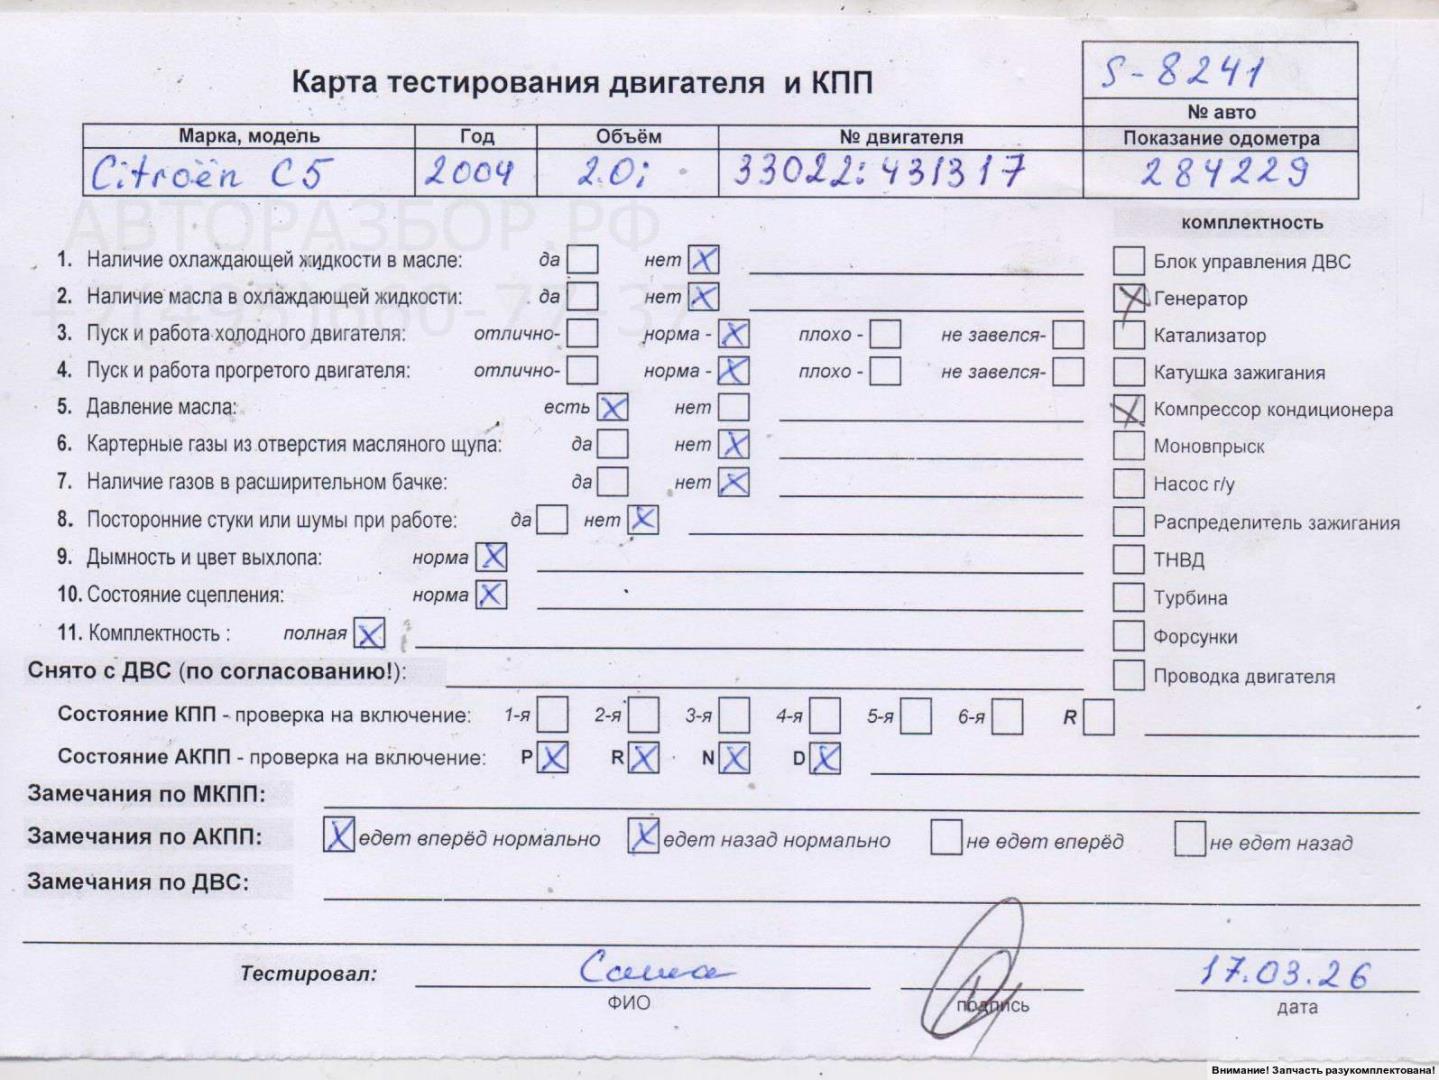 S-8241
Карта тестирования двигателя и КПП
№ авто
Марка, модель Год Объём № двигателя Показание одометра
Citroën C5 2004 2.0i 33022:431317 284229
АВТОРАЗБОР.РФ
комплектность
1. Наличие охлаждающей жидкости в масле: да нет Блок управления ДВС
2. Наличие масла в охлаждающей жидкости: да нет Генератор
+7(495)660-77-37
3. Пуск и работа холодного двигателя: отлично- норма - плохо - не завелся- Катализатор
4. Пуск и работа прогретого двигателя: отлично- норма - плохо - не завелся- Катушка зажигания
5. Давление масла: есть нет Компрессор кондиционера
6. Картерные газы из отверстия масляного щупа: да нет Моновпрыск
7. Наличие газов в расширительном бачке: да нет Насос г/у
8. Посторонние стуки или шумы при работе: да нет Распределитель зажигания
9. Дымность и цвет выхлопа: норма ТНВД
10. Состояние сцепления: норма Турбина
11. Комплектность : полная Форсунки
Снято с ДВС (по согласованию!): Проводка двигателя
Состояние КПП - проверка на включение: 1-я 2-я 3-я 4-я 5-я 6-я R
Состояние АКПП - проверка на включение: P R N D
Замечания по МКПП:
Замечания по АКПП: едет вперёд нормально едет назад нормально не едет вперёд не едет назад
Замечания по ДВС:
Тестировал: Саша 17.03.26
ФИО подпись дата
Внимание! Запчасть разукомплектована!